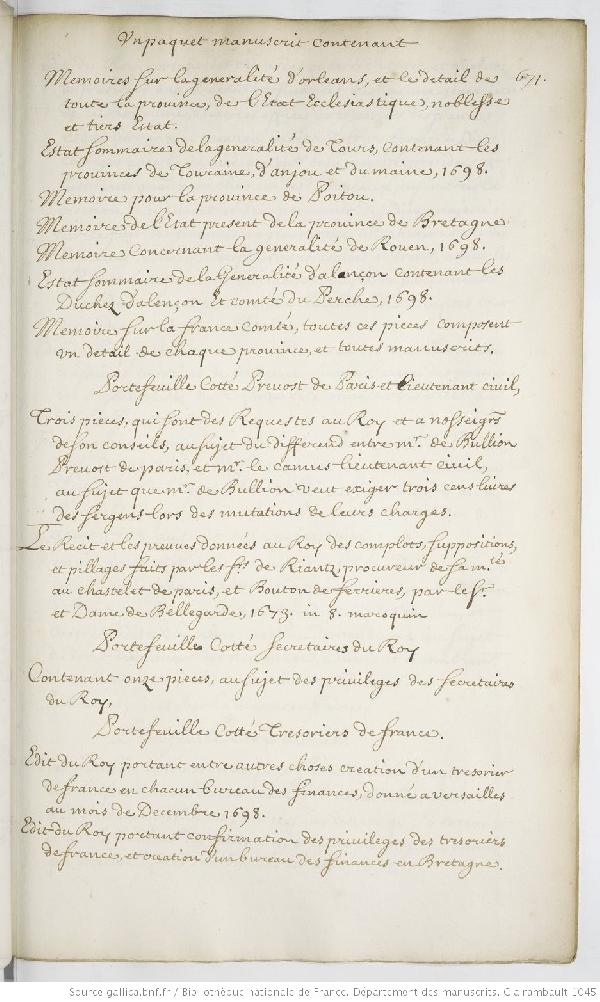 Vn paquet manuscrit contenant
Memoires sur la generalité d'orleans, et le detail de 671.
toute la province, de l'Etat Ecclesiastique, noblesse
et tiers Estat.
Estat sommaire de la generalité de Tours, contenant les
provinces de Touraine, d'anjou et du maine, 1698.
Memoire pour la province de Poitou.
Memoire de l'Etat present de la province de Bretagne
Memoire Concernant la generalité de Rouen, 1698.
Estat sommaire de la Generalité d'alençon contenant les
Duchez d'alençon Et comté du Perche, 1698.
Memoire sur la france Comté, toutes ces pieces composent
vn detail de chaque province, et toutes manuscrits.
Portefeuille Cotté Prevost de Paris et Lieutenant civil,
Trois pieces, qui sont des Requestes au Roy et a nosseigrs
de son conseils, au sujet du differend entre mr. de Bullion
Prevost de paris, et mr. le camus lieutenant civil,
au sujet que mr. de Bullion veut exiger trois cens livres
des sergens lors des mutations de leurs charges.
Le Recit et les preuves données au Roy des complots, suppositions,
et pillages faits par les srs de Riantz, procureur de sa mté
au chastelet de paris, et Bouton de ferrieres, par les sr.
et Dame de Bellegarde, 1673. in 8. maroquin
Portefeuille Cotté Secretaires du Roy
Contenant onze pieces, au sujet des privileges des secretaires
du Roy,
Portefeuille Cotté Tresoriers de france.
Edit du Roy portant entre autres choses creation d'un tresorier
de france en chacun bureau des finances, donné a versailles
au mois de Decembre 1698.
Edit du Roy portant confirmation des privileges des tresoriers
de france, et creation d'un bureau des finances en Bretagne.
Source gallica.bnf.fr / Bibliothèque nationale de France. Département des manuscrits. Clairambault 1045